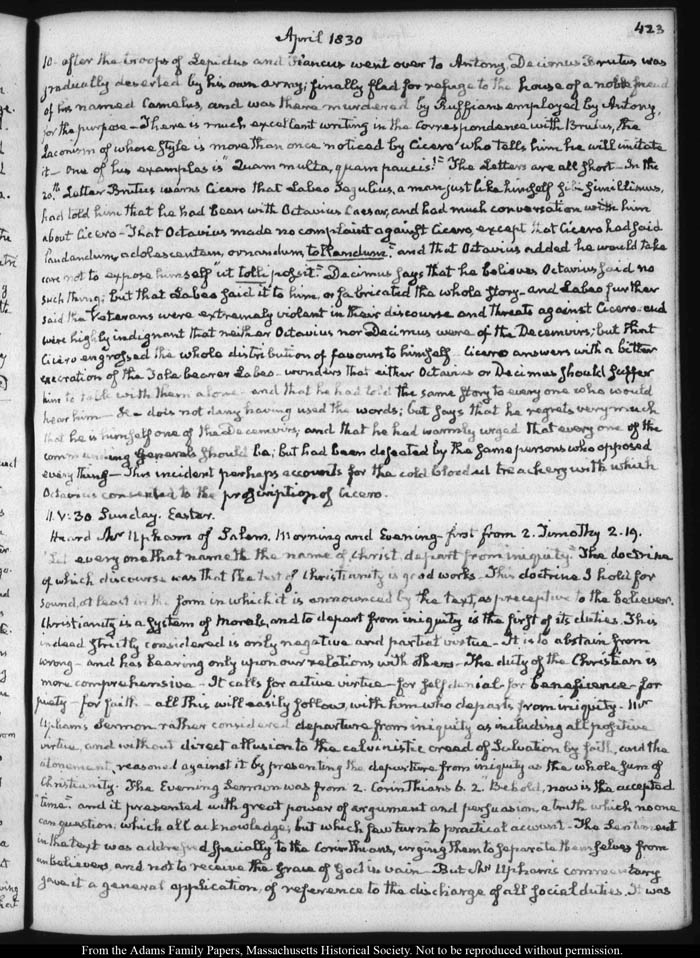 April 1830
423
10. after the troops of Lepidus and Plancus went over to Antony, Decimus Brutus was
gradually deserted by his own army; finally fled for refuge to the house of a noble friend
of his named Camelus, and was there murdered by Ruffians employed by Antony,
for the purpose— There is much excellent writing in the correspondence with Brutus, the
Laconism of whose style is more than once noticed by Cicero who tells him he will imitate
it— One of his examples is "Quam multa, quam paucis!" The Letters are all short— In the
20.th Letter Brutus warns Cicero that Labeo Segulius, a man just like himself sibi simillimus,
had told him that he had been with Octavius Caesar, and had much conversation with him
about Cicero— That Octavius made no complaint against Cicero, except that Cicero had said
laudandum, adolescentem, ornandum, tollendum." and that Octavius added he would take
care not to expose himself "ut tolli possit." Decimus says that he believes Octavius said no
such thing; but that Labeo said it to him, or fabricated the whole story— and Labeo further
said the Veterans were extremely violent in their discourse and threats against Cicero— and
were highly indignant that neither Octavius nor Decimus were of the Decemvirs; but that
Cicero engrossed the whole distribution of favours to himself. Cicero answers with a bitter
execration of the Tale bearer Labeo— wonders that either Octavius or Decimus should suffer
him to talk with them alone— and that he had told the same story to every one who would
hear him— He does not deny having used the words; but says that he regrets very much
that he is himself one of the Decemvirs; and that he had warmly urged that every one of the
commanding Generals should be; but had been defeated by the same persons who opposed
every thing— This incident perhaps accounts for the cold blooded treachery with which
Octavius consented to the proscription of Cicero.
11. V:30. Sunday. Easter.
Heard Mr Upham of Salem, Morning and Evening— first from 2. Timothy 2.19.
"Let every one that nameth the name of Christ, depart from iniquity." The doctrine
of which discourse was that the test of Christianity is good works— This doctrine I hold for
sound, at least in the form in which it is announced by the text, as preceptive to the believer.
Christianity is a system of Morals, and to depart from iniquity is the first of its duties. This
indeed strictly considered is only negative and partial virtue— It is to abstain from
wrong— and has bearing only upon our relations with others— The duty of the Christian is
more comprehensive— It calls for active virtue— for self denial— for beneficence— for
piety— for faith— all this will easily follow, with him who departs from iniquity— Mr
Upham's Sermon rather considered departure from iniquity as including all positive
virtue, and without direct allusion to the calvinistic creed of Salvation by faith, and the
atonement, reasoned against it by presenting the departure from iniquity as the whole sum of
Christianity. The Evening Sermon was from 2. Corinthians 6.2. "Behold, now is the accepted
"time." and it presented with great power of argument and persuasion, a truth which no one
can question, which all acknowledge; but which few turn to practical account— The Sentiment
in the text was addressed specially to the Corinthians, urging them to separate themselves from
unbelievers, and not to receive the Grace of God in vain— But Mr Upham's commentary
gave it a general application, of reference to the discharge of all social duties. It was
From the Adams Family Papers, Massachusetts Historical Society. Not to be reproduced without permission.